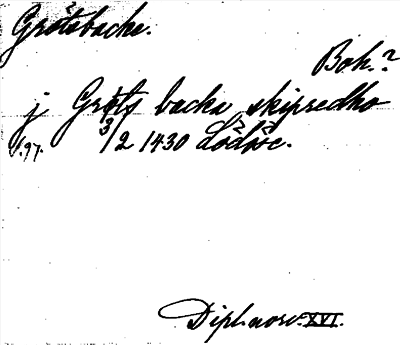 Grötsbacke.
Boh.?
j Gröts backa skipredho
s.97. 3/2 1430 Lödöse.
Dipl. norv. XVI.